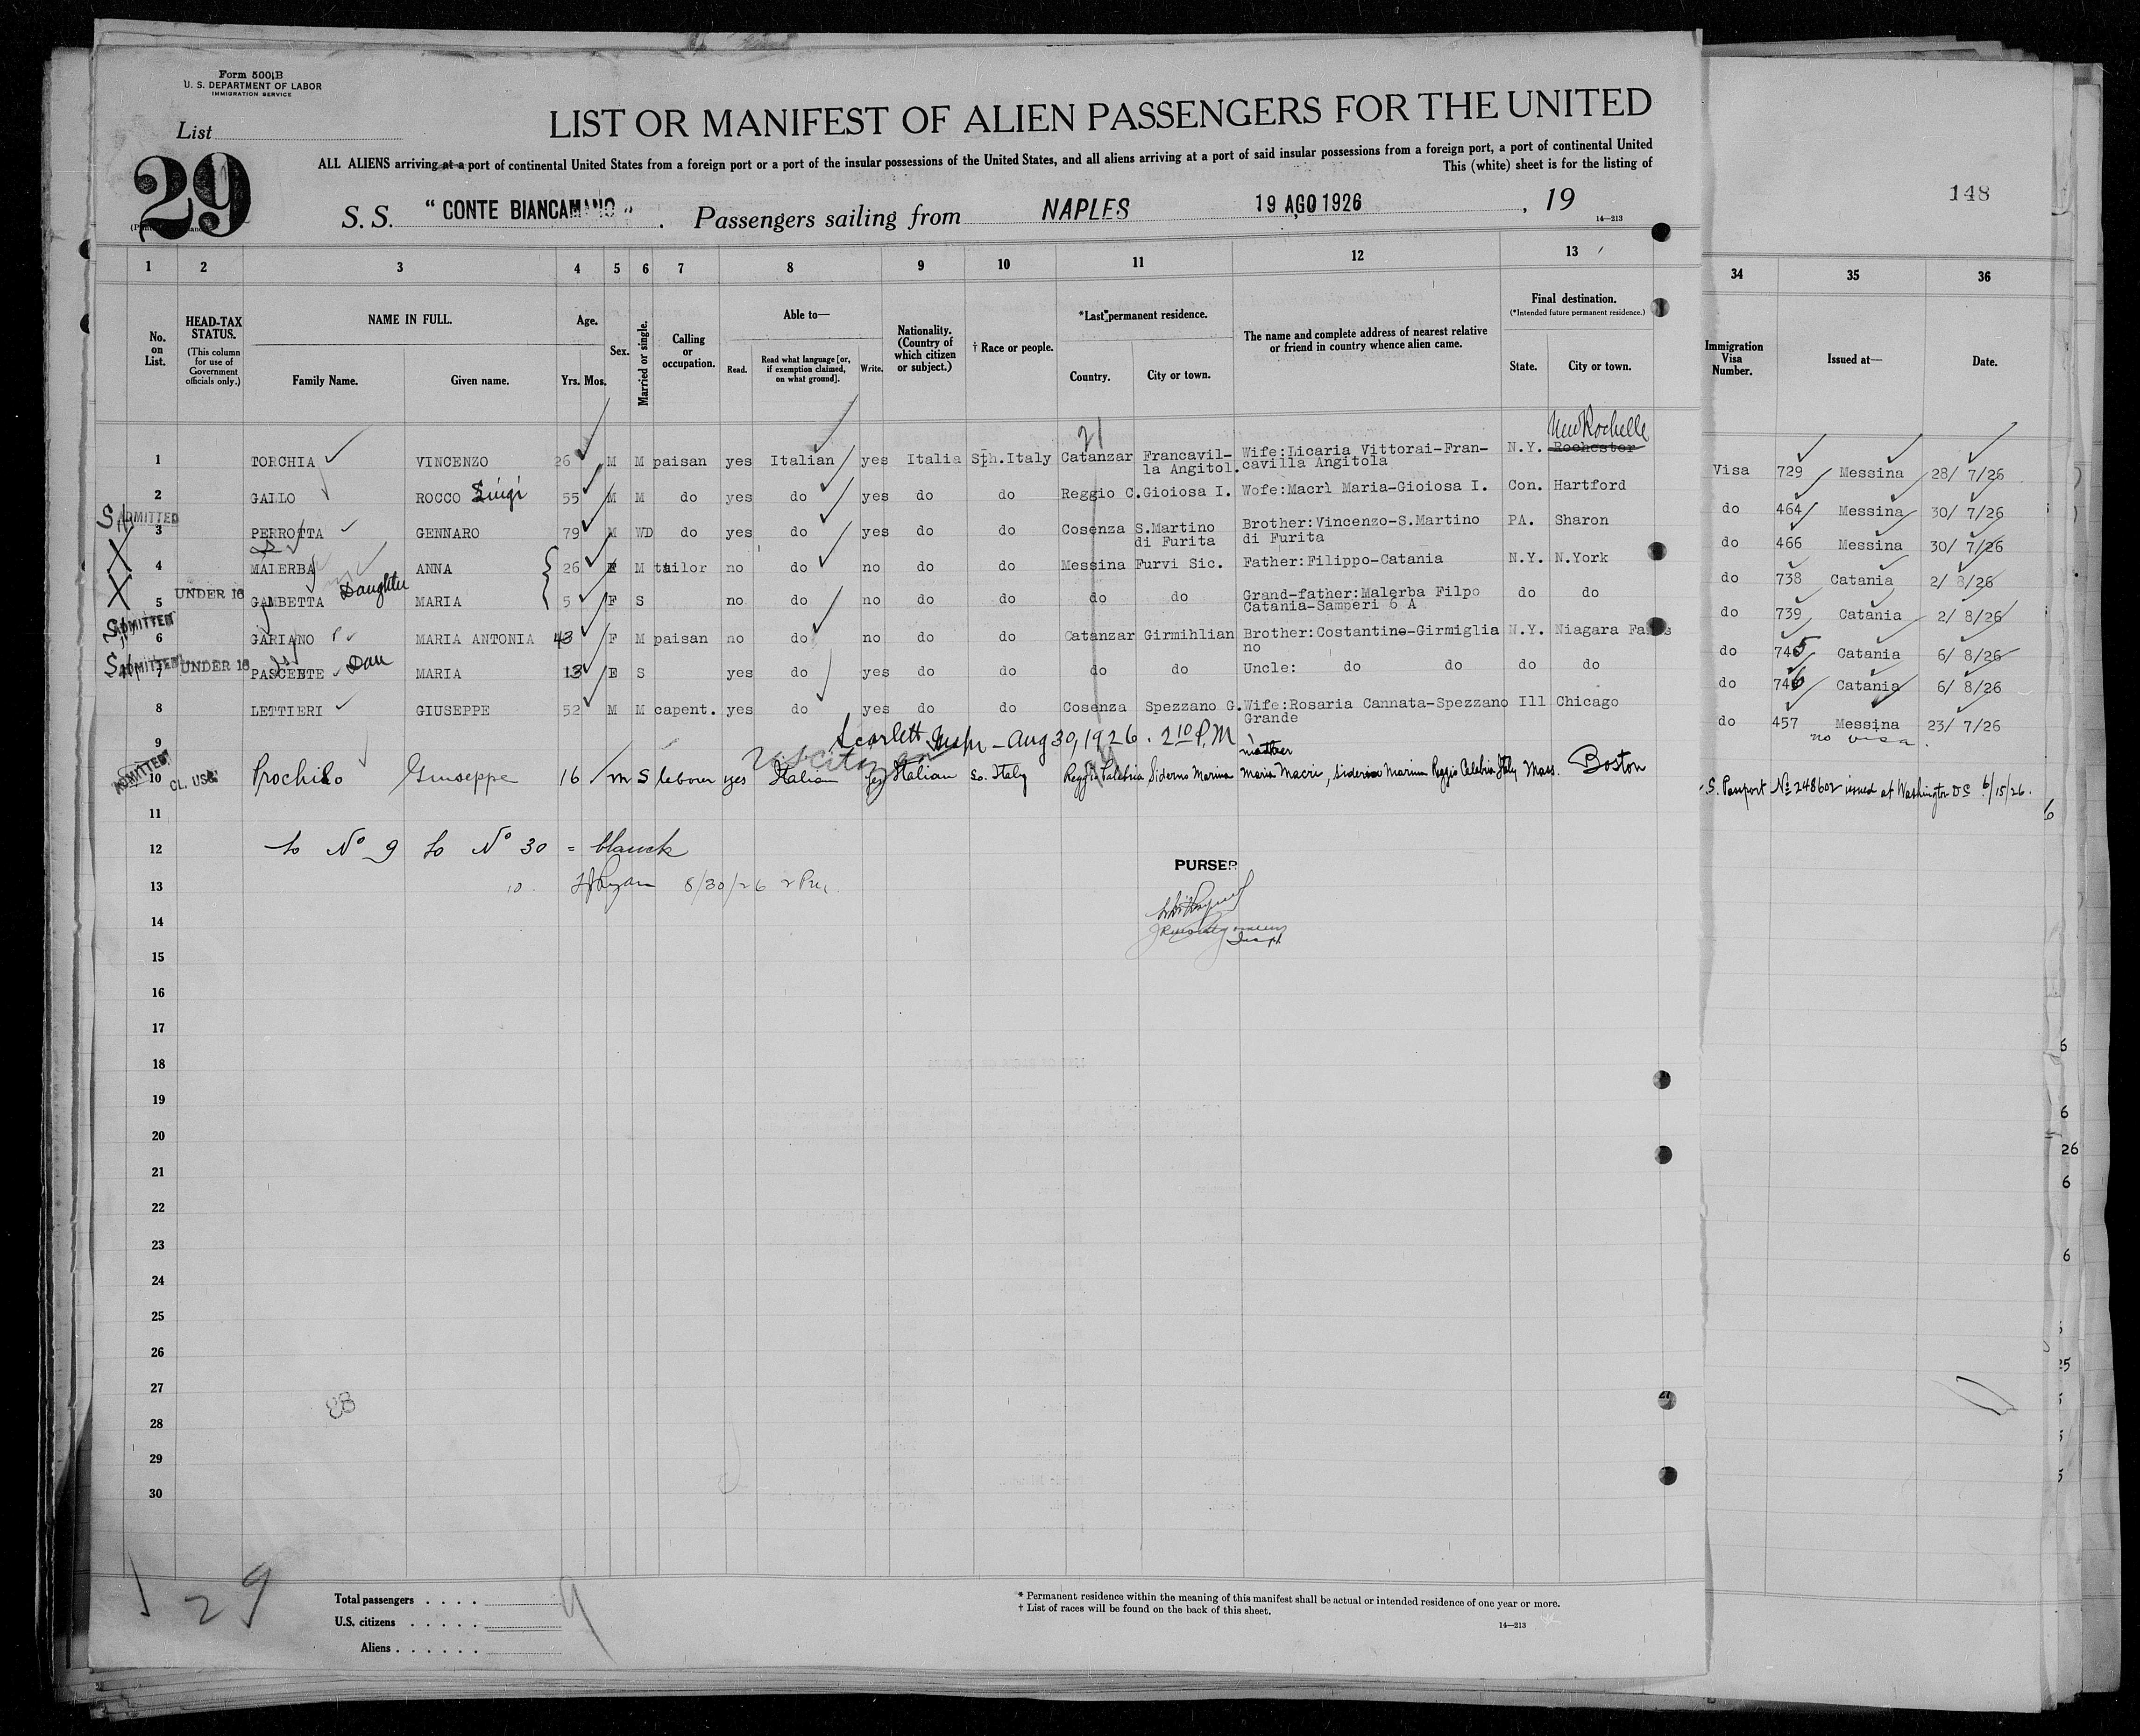 Form 500 B
U. S. DEPARTMENT OF LABOR
IMMIGRATION SERVICE
List
29
LIST OR MANIFEST OF ALIEN PASSENGERS FOR THE UNITED
ALL ALIENS arriving at a port of continental United States from a foreign port or a port of the insular possessions of the United States, and all aliens arriving at a port of said insular possessions from a foreign port, a port of continental United
This (white) sheet is for the listing of
148
S. S. " CONTE BIANCAMANO " . Passengers sailing from NAPLES 19 AGO 1926 , 19
14—213
1 2 3 4 5 6 7 8 9 10 11 12 13 34 35 36
No. on List.
HEAD-TAX STATUS.
(This column for use of Government officials only.)
NAME IN FULL.
Family Name. Given name.
Age.
Yrs. Mos.
Sex.
Married or single.
Calling or occupation.
Able to—
Read. Read what language [or, if exemption claimed, on what ground]. Write.
Nationality. (Country of which citizen or subject.)
† Race or people.
*Last permanent residence.
Country. City or town.
The name and complete address of nearest relative or friend in country whence alien came.
Final destination.
(*Intended future permanent residence.)
State. City or town.
Immigration Visa Number.
Issued at—
Date.
21
New Rochelle
1 TORCHIA VINCENZO 26 M M paisan yes Italian yes Italia Sth.Italy Catanzar Francavil- Wife:Licaria Vittorai-Fran- N.Y. Rochester Visa 729 Messina 28/ 7/26
la Angitol. cavilla Angitola
2 GALLO ROCCO Luigi 55 M M do yes do yes do do Reggio C. Gioiosa I. Wofe:Macrì Maria-Gioiosa I. Con. Hartford do 464 Messina 30/ 7/26
ADMITTED
3 PERROTTA GENNARO 79 M WD do yes do yes do do Cosenza S.Martino Brother:Vincenzo-S.Martino PA. Sharon do 466 Messina 30/ 7/26
di Furita di Furita
4 MALERBA ANNA 26 M tailor no do no do do Messina Furvi Sic. Father:Filippo-Catania N.Y. N.York do 738 Catania 2/ 8/26
UNDER 16 Daughter
5 GAMBETTA MARIA 5 F S no do no do do do do Grand-father:Malerba Filpo do do do 739 Catania 2/ 8/26
Catania-Samperi 6 A
ADMITTED
6 GARIANO MARIA ANTONIA 43 F M paisan no do no do do Catanzar Girmihlian Brother:Costantine-Girmiglia N.Y. Niagara Falls do 745 Catania 6/ 8/26
no
ADMITTED UNDER 16 Dau
7 PASCENTE MARIA 13 F S yes do yes do do do do Uncle: do do do do do 746 Catania 6/ 8/26
8 LETTIERI GIUSEPPE 52 M M capent. yes do yes do do Cosenza Spezzano G. Wife:Rosaria Cannata-Spezzano Ill Chicago do 457 Messina 23/ 7/26
Grande
9 Scarlett Inspr - Aug 30, 1926. 2 10 P.M
no visa.
mother
ADMITTED CL. USC
10 Prochilo Giuseppe 16 M S labour yes Italian yes Italian So. Italy Reggio Calabria Siderno Marina Maria Macri, Siderno Marina Reggio Calabria Italy Mass. Boston
S. Passport No 248602 issued at Washington D C 6/15/26.
11
12 No 9 to No 30 = blanck
PURSER
13 10. 8/30/26 2 PM
14
15
16
17
18
19
20
21
22
23
24
25
26
27
28
29
30
29
Total passengers . . . .
U.S. citizens . . . . .
Aliens . . . . . .
9
* Permanent residence within the meaning of this manifest shall be actual or intended residence of one year or more.
† List of races will be found on the back of this sheet.
14—213